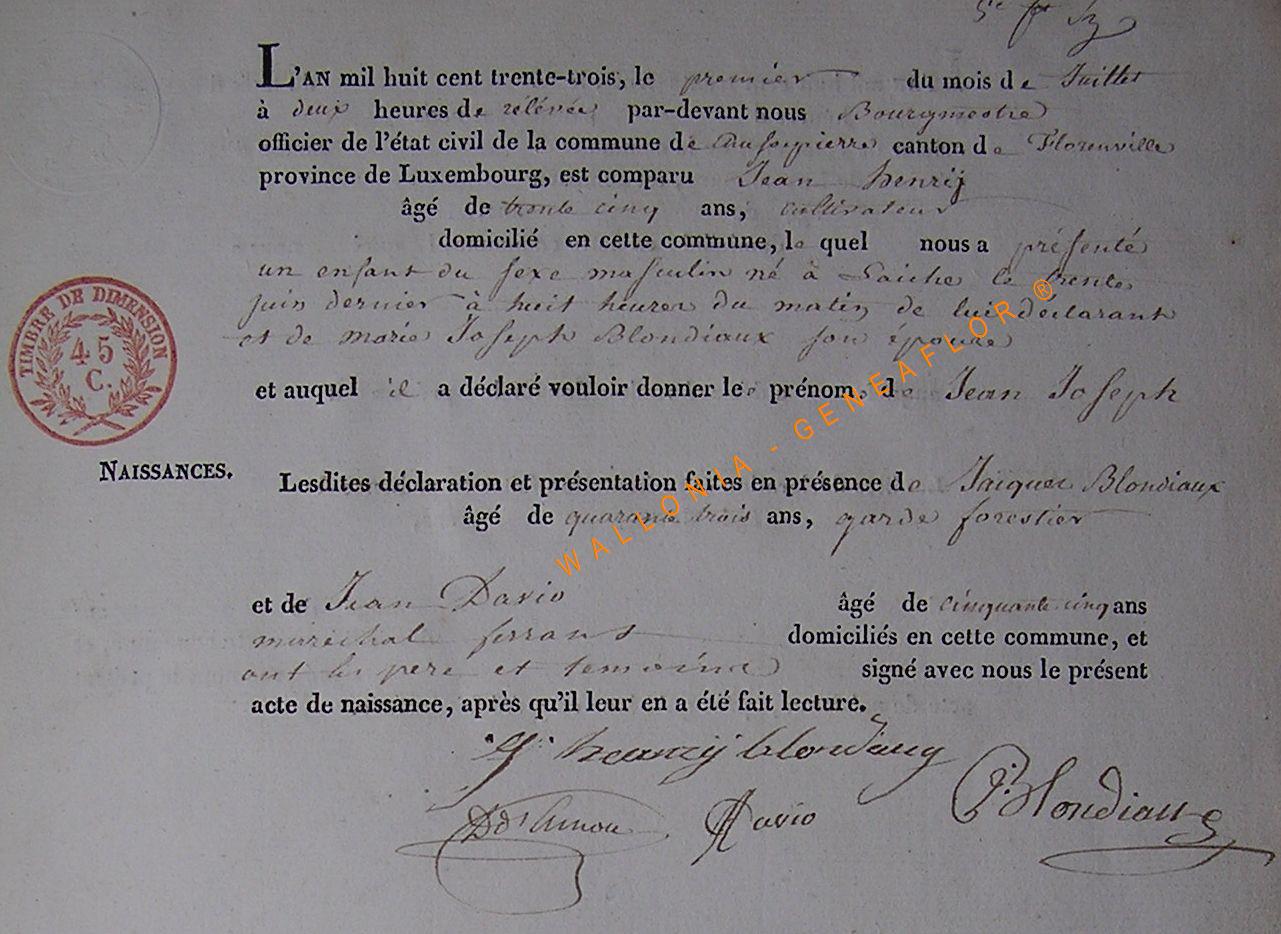 L'AN mil huit cent trente-trois, le premier du mois de Juillet
à deux heures de rélévée par-devant nous Bourgmestre
officier de l'état civil de la commune de canton de Florenville
province de Luxembourg, est comparu Jean henrij
âgé de trente cinq ans, cultivateur
domicilié en cette commune, le quel nous a présenté
un enfant du sexe masculin né à Laiche le trente
juin dernier à huit heures du matin de lui déclarant
et de marie Joseph Blondiaux son épouse
TIMBRE DE DIMENSION
45
C.
et auquel il a déclaré vouloir donner les prénoms de Jean Joseph
NAISSANCES.
Lesdites déclaration et présentation faites en présence de Jacques Blondiaux
âgé de quarante trois ans, garde forestier
et de Jean Davio âgé de cinquante cinq ans
maréchal ferrant domiciliés en cette commune, et
ont les pere et temoins signé avec nous le présent
acte de naissance, après qu'il leur en a été fait lecture.
WALLONIA - GENEAFLOR ®
Davio
Blondiaux